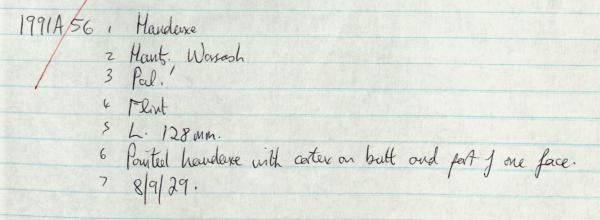 1991A/56 1 Handaxe
2 Hants. Warsash
3 Pal.'
4 Flint
5 L. 128mm.
6 Pointed handaxe with cortex on butt and part of one face.
7 8/9/29.